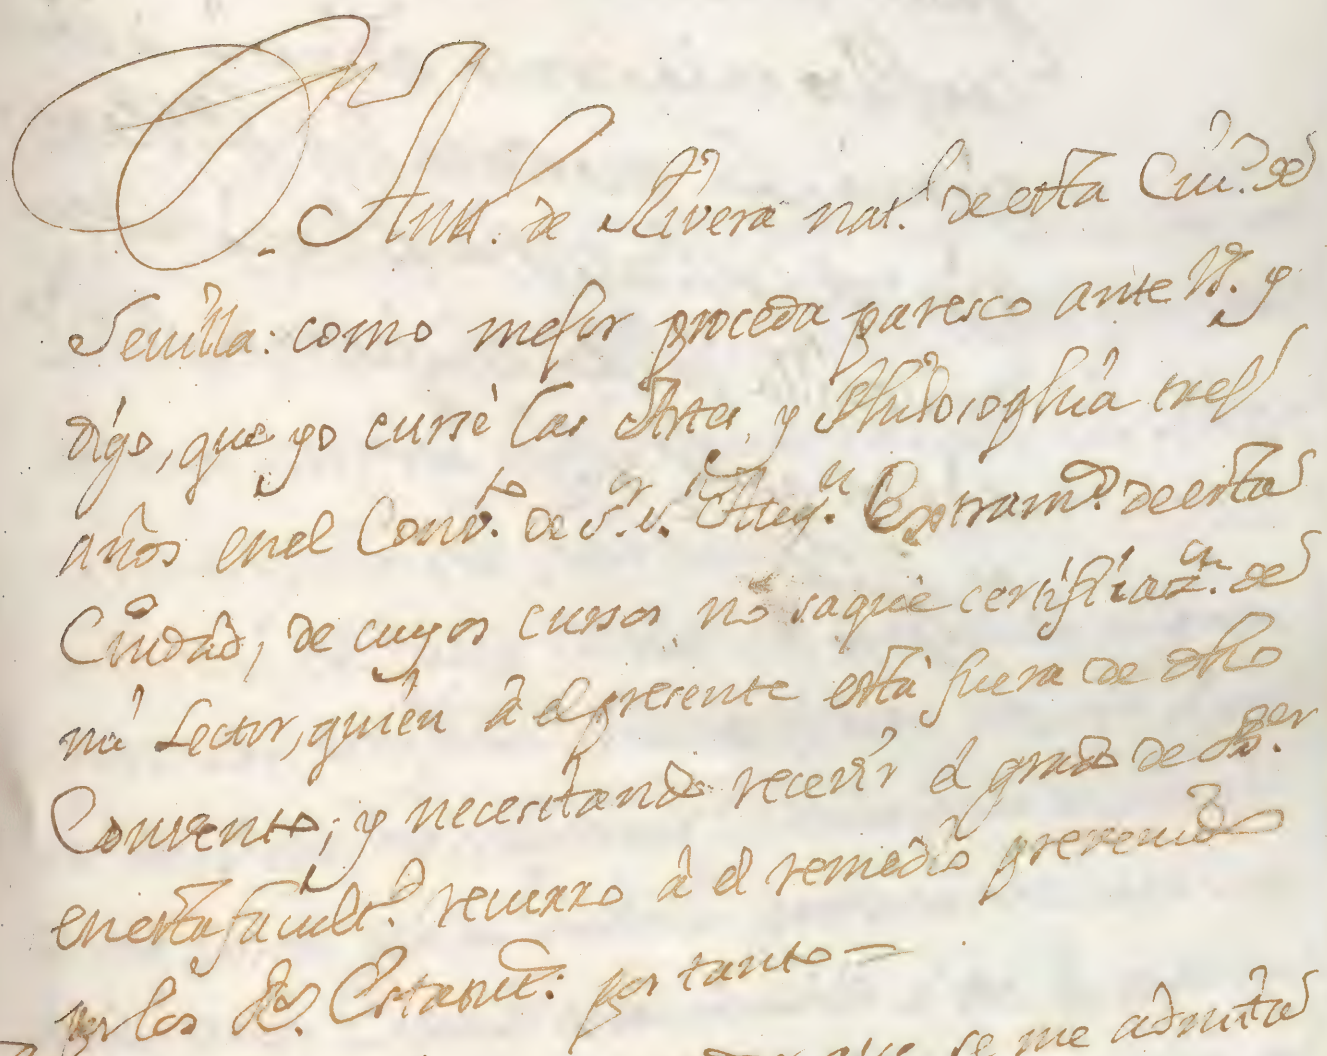 Dn. Antt. de Rivera nat.l de esta Ciu.d de
Sevilla: como mejor proceda paresco ante V.S. y
digo, que yo cursè las Artes, y Philosophia tres
años en el Conv.to de S.r S.n Aug.n Extram.s de esta
Ciudad, de cuyos cursos no saquè certificaz.on de
mi Lector, quien â el presente està fuera de dho
Convento; y necesitando recevir el grado de B.er
en esta facult.d recurro â el remedio prevenido
por los R.s Estatut.s: por tanto
se me admita